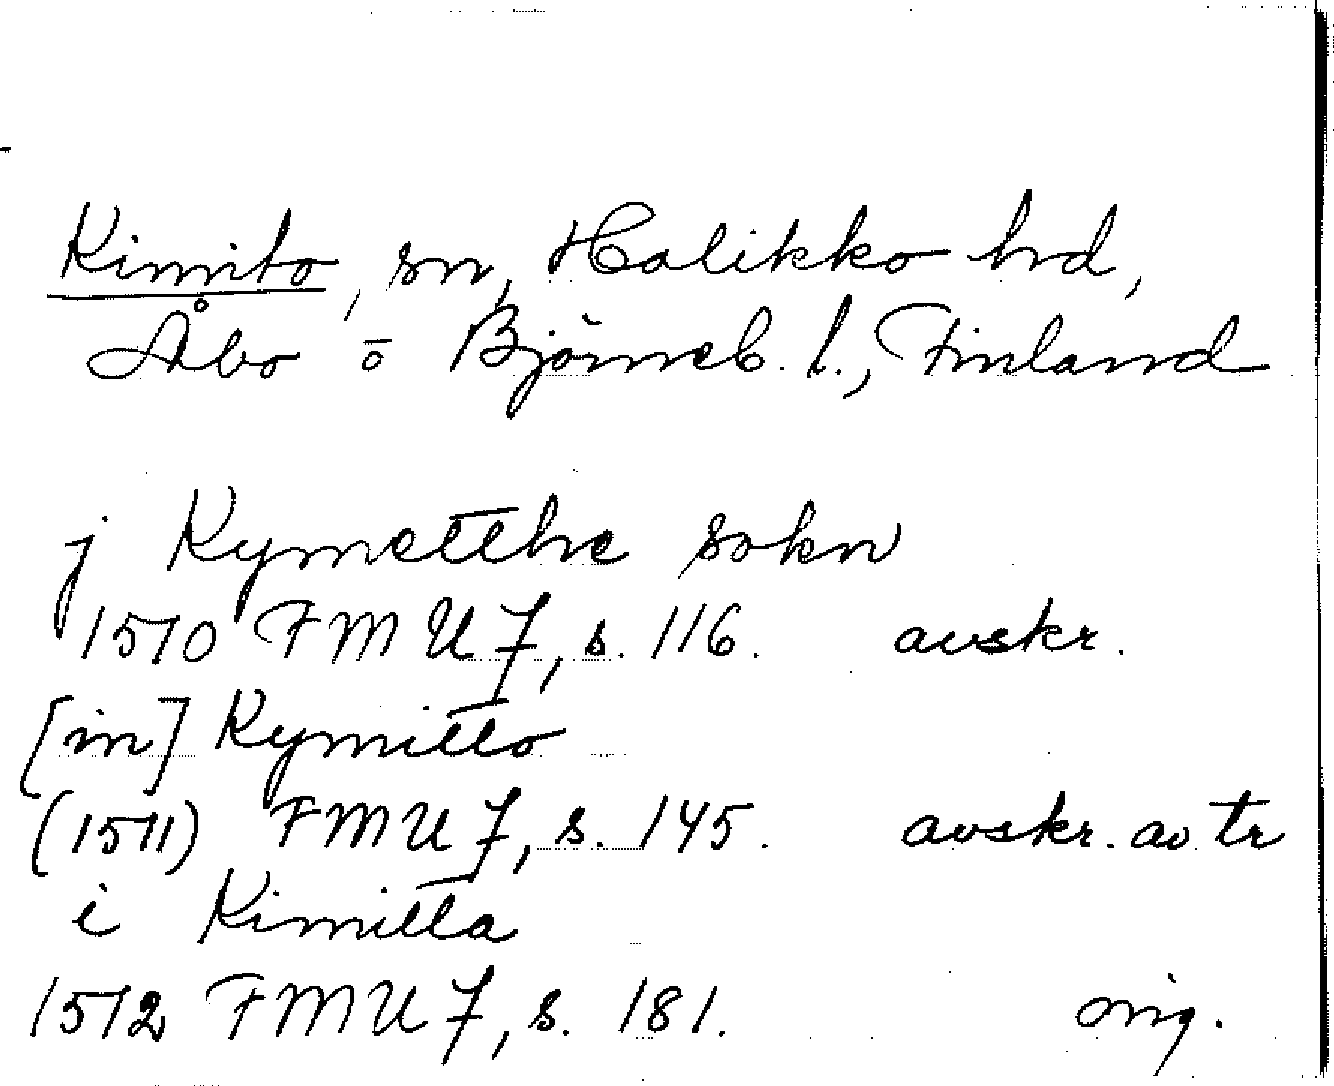 Kimito, sn, Halikko hd,
Åbo o Björneb. l., Finland
j Kymetthe sokn
1510 FMU 7, s. 116. avskr.
[in] Kymitto
(1511) FMU 7, s. 145. avskr. av tr
i Kimitta
1512 FMU 7, s. 181. orig.